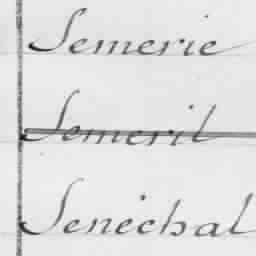 Semerie
Semeril
Senéchal